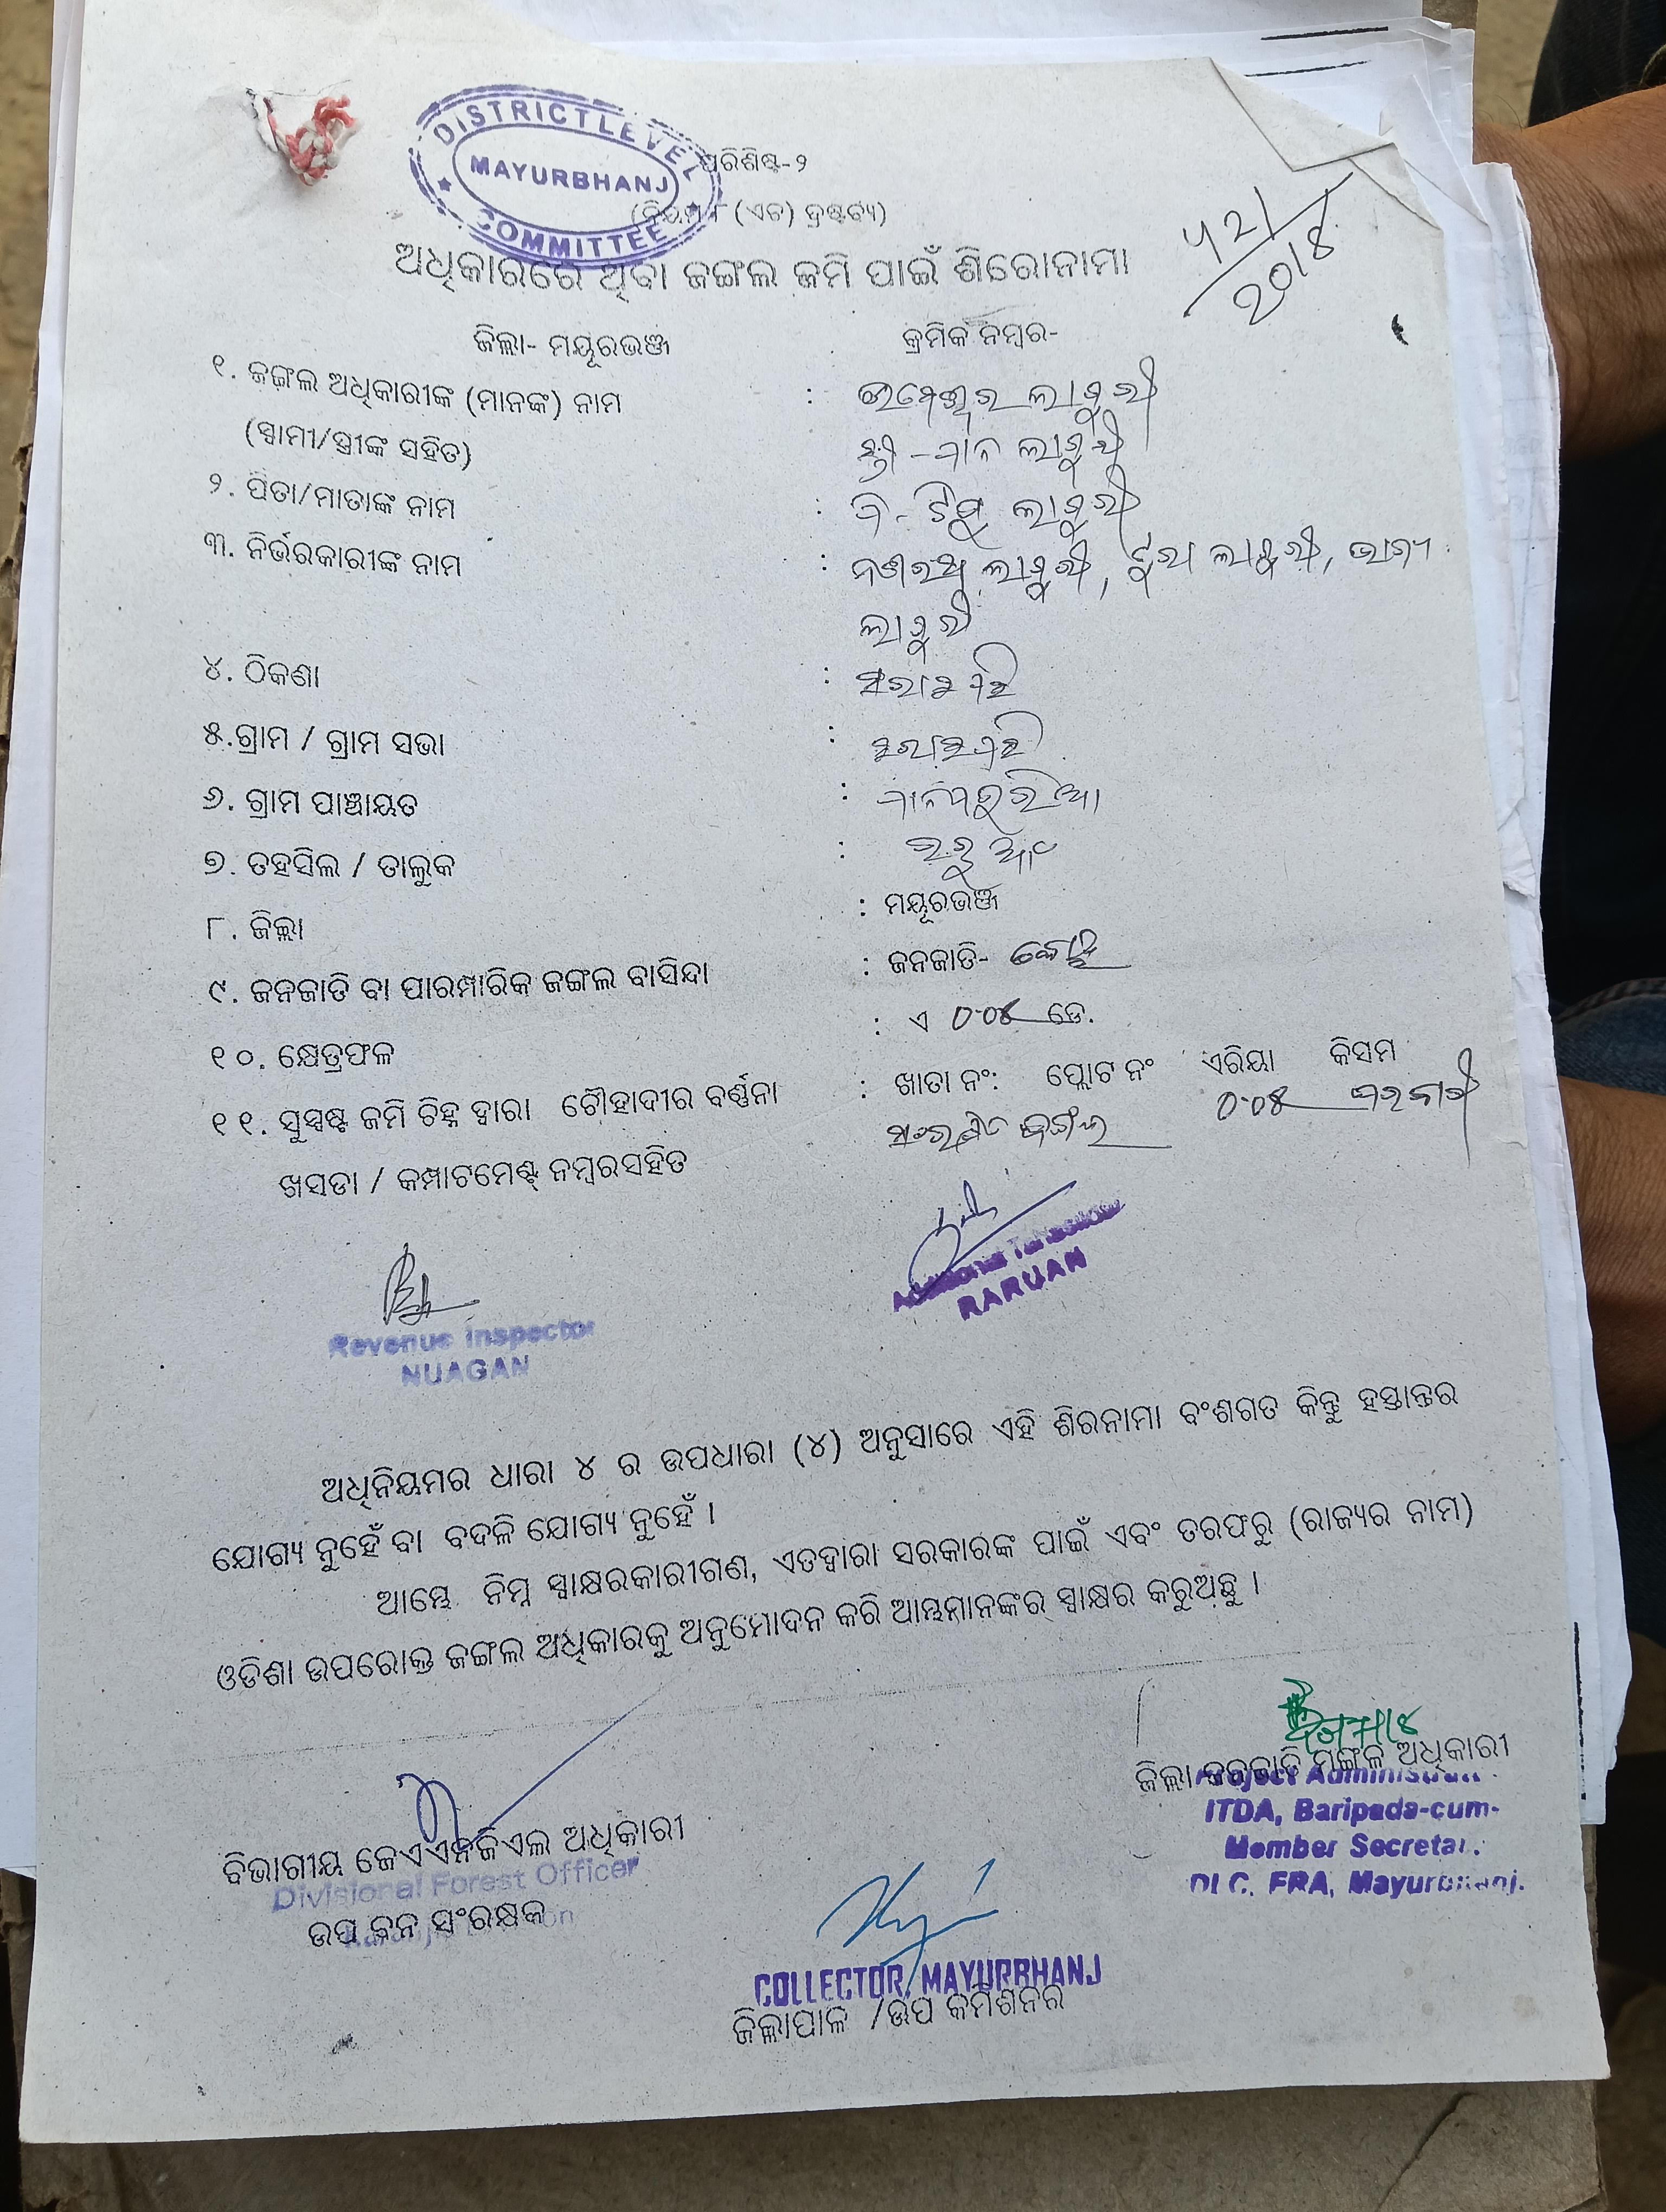 DISTRICT LEVEL
MAYURBHANJ
COMMITTEE
ପରିଶିଷ୍ଟ-୨
(ଏଚ) ଦ୍ରଷ୍ଟବ୍ୟ)
୨୦୧୪
ଅଧିକାରରେ ଥିବା ଜଙ୍ଗଲ ଜମି ପାଇଁ ଶିରୋନାମା
ଜିଲ୍ଲା- ମୟୂରଭଞ୍ଜ କ୍ରମିକ ନମ୍ବର-
୧. ଜଙ୍ଗଲ ଅଧିକାରୀଙ୍କ (ମାନଙ୍କ) ନାମ : ଲାଗୁରୀ
(ସ୍ୱାମୀ/ସ୍ତ୍ରୀଙ୍କ ସହିତ) ସ୍ତ୍ରୀ - ଲାଗୁରୀ
୨. ପିତା/ମାତାଙ୍କ ନାମ : ଲାଗୁରୀ
୩. ନିର୍ଭରକାରୀଙ୍କ ନାମ : ଲାଗୁରୀ, ଲାଗୁରୀ,
ଲାଗୁରୀ
୪. ଠିକଣା :
୫.ଗ୍ରାମ / ଗ୍ରାମ ସଭା :
୬. ଗ୍ରାମ ପାଞ୍ଚାୟତ :
୭. ତହସିଲ / ତାଲୁକ : ରରୁଆଂ
୮. ଜିଲ୍ଲା : ମୟୂରଭଞ୍ଜ
୯. ଜନଜାତି ବା ପାରମ୍ପାରିକ ଜଙ୍ଗଲ ବାସିନ୍ଦା : ଜନଜାତି- କୋହ୍ଲ
୧୦. କ୍ଷେତ୍ରଫଳ : ଏ 0.08 ଡେ.
୧୧. ସୁସ୍ପଷ୍ଟ ଜମି ଚିହ୍ନ ଦ୍ୱାରା ଚୌହାଦୀର ବର୍ଣ୍ଣନା : ଖାତା ନଂ: ପ୍ଲୋଟ ନଂ ଏରିୟା କିସମ
ଖସଡା / କମ୍ପାଟମେଣ୍ଟ୍ ନମ୍ବରସହିତ ସଂରକ୍ଷିତ ଜଙ୍ଗଲ 0.08 ଘରବାରି
Revenue Inspector
NUAGAN
Additional Tahasildar
RARUAN
ଅଧିନିୟମର ଧାରା ୪ ର ଉପଧାରା (୪) ଅନୁସାରେ ଏହି ଶିରନାମା ବଂଶଗତ କିନ୍ତୁ ହସ୍ତାନ୍ତର
ଯୋଗ୍ୟ ନୁହେଁ ବା ବଦଳି ଯୋଗ୍ୟ ନୁହେଁ ।
ଆମ୍ଭେ ନିମ୍ନ ସ୍ୱାକ୍ଷରକାରୀଗଣ, ଏତଦ୍ୱାରା ସରକାରଙ୍କ ପାଇଁ ଏବଂ ତରଫରୁ (ରାଜ୍ୟର ନାମ)
ଓଡିଶା ଉପରୋକ୍ତ ଜଙ୍ଗଲ ଅଧିକାରକୁ ଅନୁମୋଦନ କରି ଆମ୍ଭମାନଙ୍କର୍ ସ୍ୱାକ୍ଷର କରୁଅଛୁ ।
ଜିଲ୍ଲା ଜନଜାତି ମଙ୍ଗଳ ଅଧିକାରୀ
Project Administrator
ITDA, Baripada-cum-
Member Secretary
DLC, FRA, Mayurbhanj.
ବିଭାଗୀୟ ଜେଏଏନଜିଏଲ ଅଧିକାରୀ
Divisional Forest Officer
ଉପ ବନ ସଂରକ୍ଷକ
COLLECTOR, MAYURBHANJ
ଜିଲ୍ଲାପାଳ /ଉପ କମିଶନର